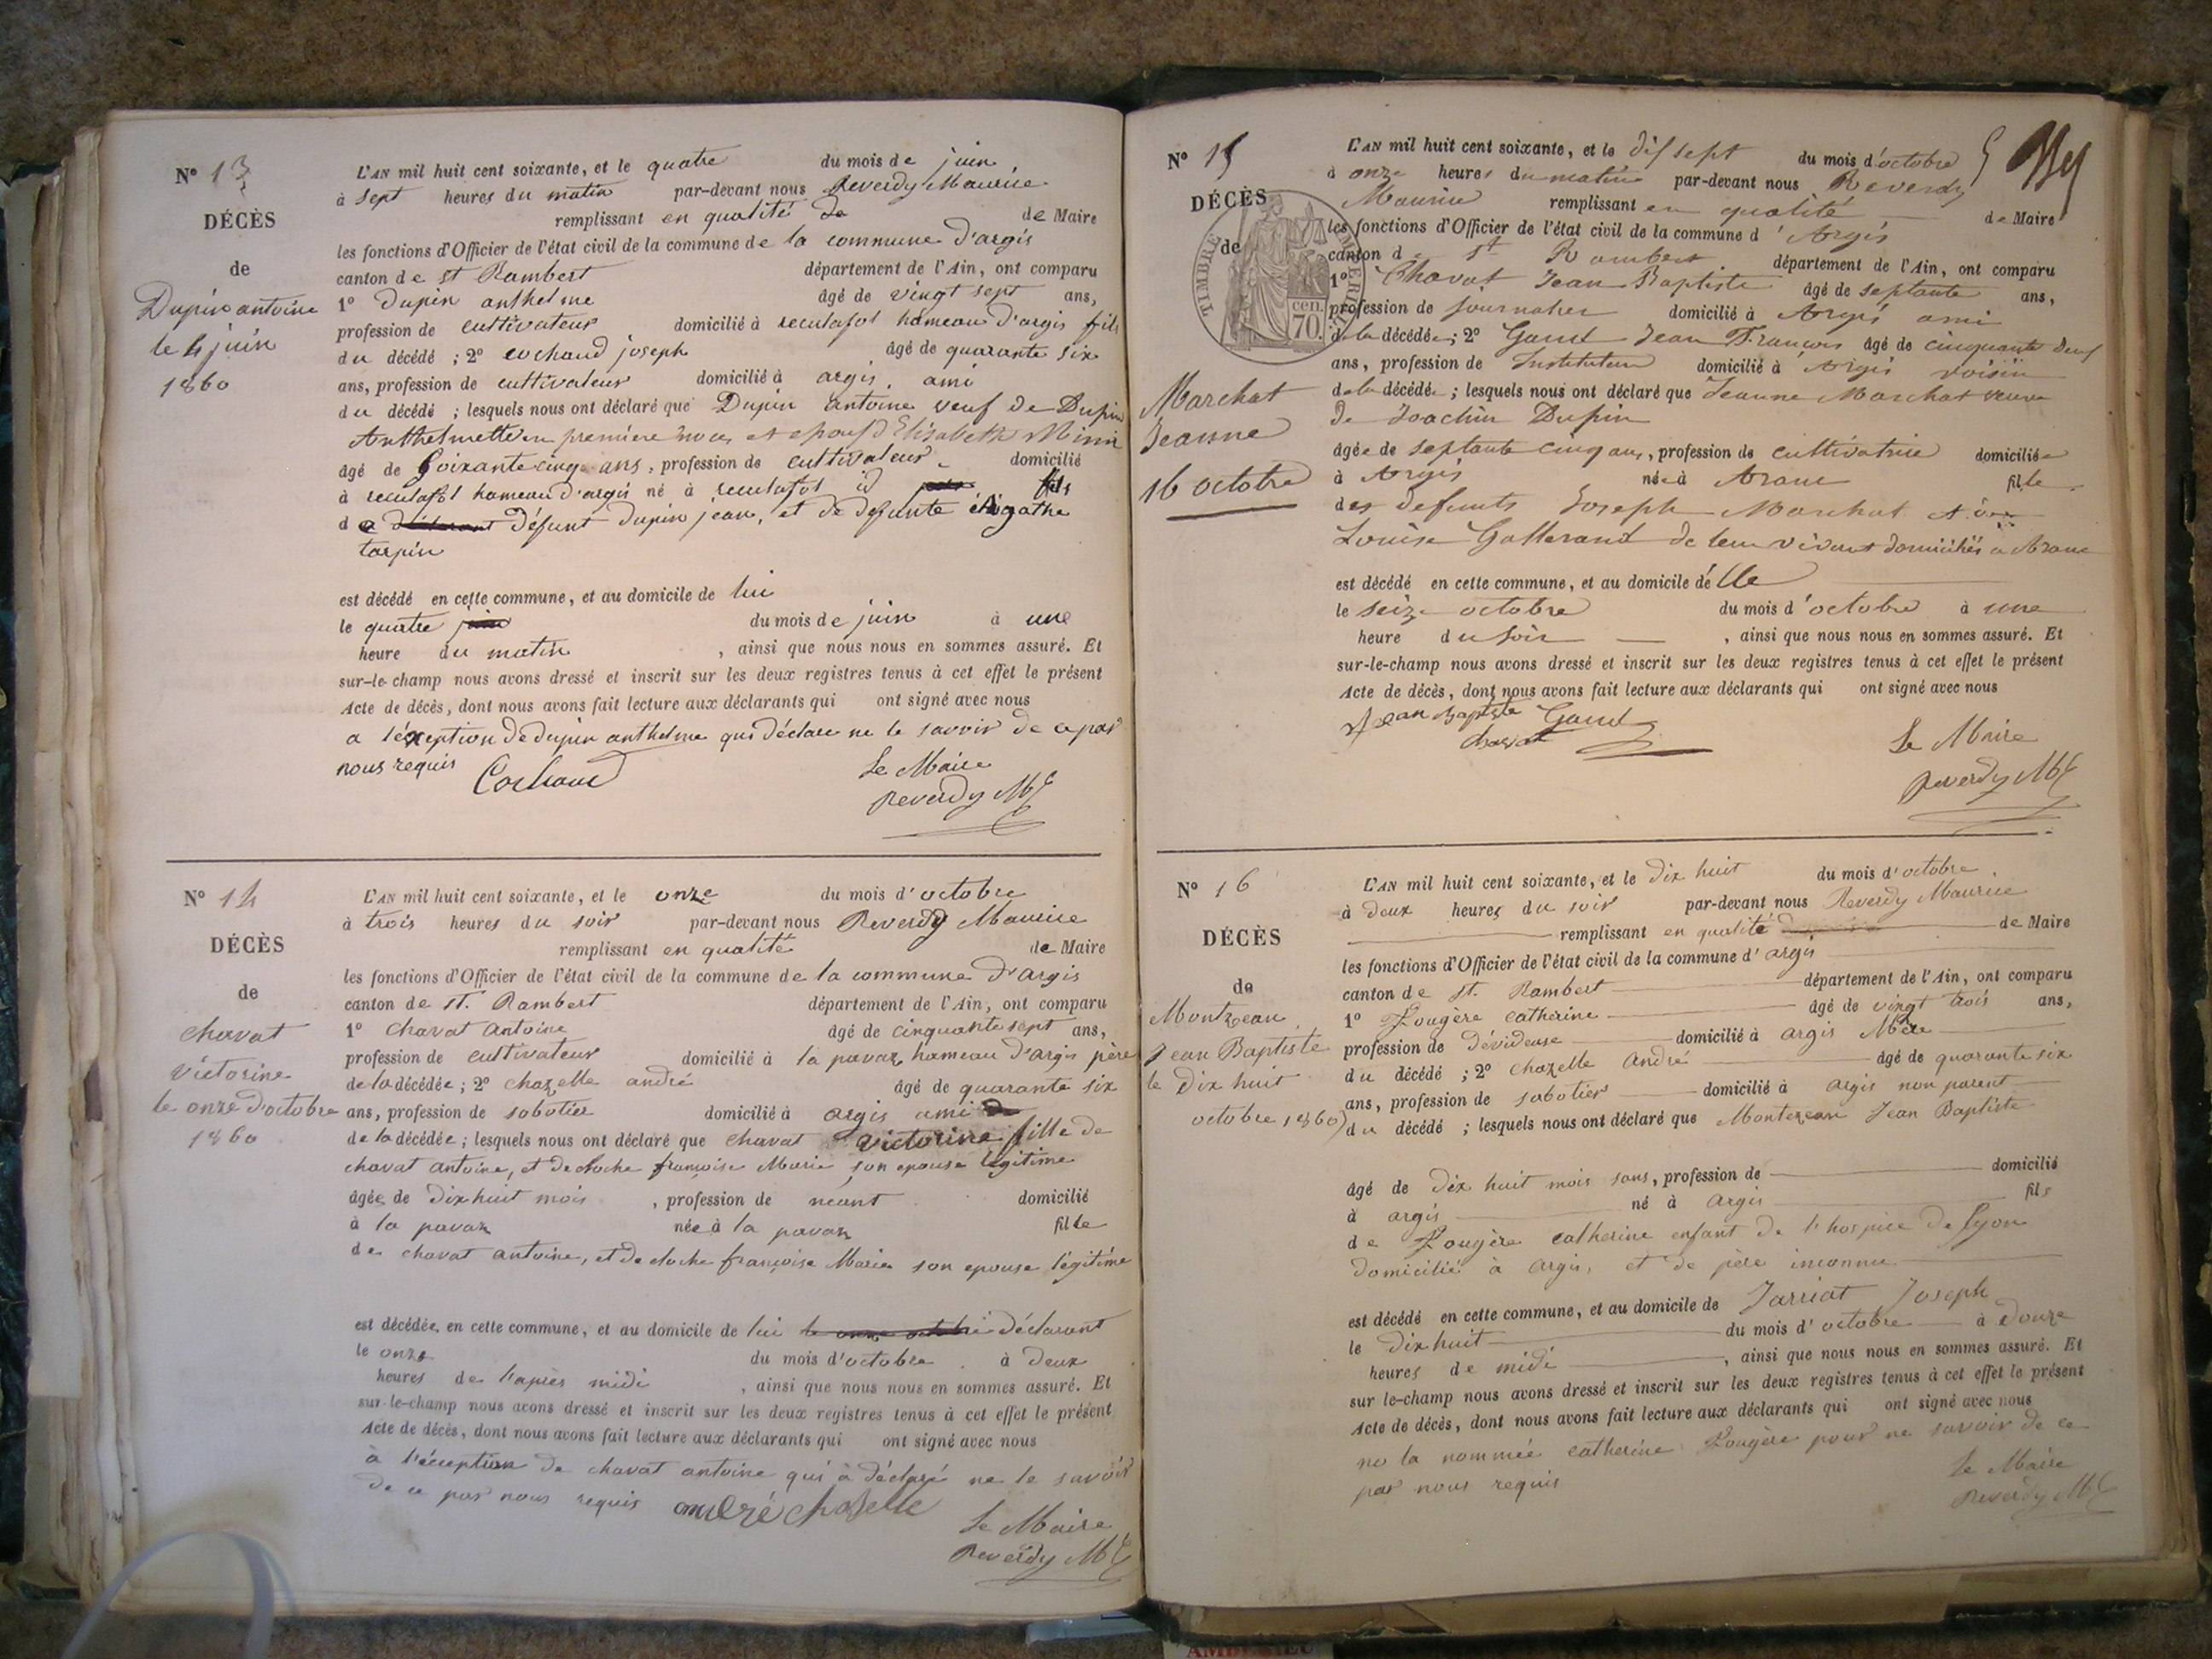 N° 13
DÉCÈS
de
Dupin antoine
le 4 juin
1860
L'AN mil huit cent soixante, et le quatre du mois de juin
à sept heures du matin par-devant nous Reverdy Maurice
remplissant en qualité de de Maire
les fonctions d'Officier de l'état civil de la commune de la commune d'argis
canton de st Rambert département de l'Ain, ont comparu
1° Dupin anthelme âgé de vingt sept ans,
profession de cultivateur domicilié à reculafol hameau d'argis fils
du décédé ; 2° cochaud joseph âgé de quarante six
ans, profession de cultivateur domicilié à argis, ami
du décédé ; lesquels nous ont déclaré que Dupin antoine veuf de Dupin
Anthelmette en première noces et époux d'Elisabeth
âgé de Soixante cinq ans, profession de cultivateur domicilié
à reculafol hameau d'argis né à reculafol id fils
de défunt dupin jean, et de defunte Agathe
tarpin
est décédé en cette commune, et au domicile de lui
le quatre juin du mois de juin à une
heure du matin , ainsi que nous nous en sommes assuré. Et
sur-le-champ nous avons dressé et inscrit sur les deux registres tenus à cet effet le présent
Acte de décès, dont nous avons fait lecture aux déclarants qui ont signé avec nous
a l'éxeption de dupin anthelme qui déclare ne le savoir de ce par
nous requis Cochaud Le Maire
Reverdy Mce
N° 14
DÉCÈS
de
chavat
victorine
le onze d'octobre
1860
L'AN mil huit cent soixante, et le onze du mois d'octobre
à trois heures du soir par-devant nous Reverdy Maurice
remplissant en qualité de Maire
les fonctions d'Officier de l'état civil de la commune de la commune d'argis
canton de st. Rambert département de l'Ain, ont comparu
1° chavat antoine âgé de cinquante sept ans,
profession de cultivateur domicilié à la pavaz hameau d'argis père
de la décédée ; 2° chazelle andré âgé de quarante six
ans, profession de sabotier domicilié à argis ami
de la décédée ; lesquels nous ont déclaré que chavat victorine fille de
chavat antoine, et de cloche françoise Marie son epouse légitime
âgée de dix huit mois , profession de néant domicilié
à la pavaz née à la pavaz fille
de chavat antoine, et de cloche françoise Marie son epouse légitime
est décédée en cette commune, et au domicile de lui le onze octobre déclarant
le onze du mois d'octobre à deux
heures de l'après midi , ainsi que nous nous en sommes assuré. Et
sur-le-champ nous avons dressé et inscrit sur les deux registres tenus à cet effet le présent
Acte de décès, dont nous avons fait lecture aux déclarants qui ont signé avec nous
à l'éception de chavat antoine qui à déclaré ne le savoir
de ce par nous requis andré chazelle
Le Maire
Reverdy Mce
N° 15
DÉCÈS
de
TIMBRE IMPERIAL
70 cen.
Marchat
Jeanne
16 octobre
L'AN mil huit cent soixante, et le dix sept du mois d'octobre
à onze heures du matin par-devant nous Reverdy
Maurice remplissant en qualité de Maire
les fonctions d'Officier de l'état civil de la commune d'Argis
canton de st Rambert département de l'Ain, ont comparu
1° Chavat Jean Baptiste âgé de septante ans,
profession de journalier domicilié à Argis ami
de la décédée ; 2° Jean François âgé de cinquante deux
ans, profession de Instituteur domicilié à Argis voisin
de la décédée ; lesquels nous ont déclaré que Jeanne Marchat veuve
de Joachim Dupin
âgée de septante cinq ans, profession de cultivatrice domiciliée
à Argis née à Aranc fille
des defunts Joseph Marchat et de
Louise Gallerand de leur vivant domiciliés a Aranc
est décédé en cette commune, et au domicile d'elle
le seize octobre du mois d'octobre à une
heure du soir , ainsi que nous nous en sommes assuré. Et
sur-le-champ nous avons dressé et inscrit sur les deux registres tenus à cet effet le présent
Acte de décès, dont nous avons fait lecture aux déclarants qui ont signé avec nous
Jean Baptiste
chavat Le Maire
Reverdy Mce
N° 16
DÉCÈS
de
Montezean
Jean Baptiste
le dix huit
octobre 1860
L'AN mil huit cent soixante, et le dix huit du mois d'octobre
à deux heures du soir par-devant nous Reverdy Maurice
remplissant en qualité de Maire
les fonctions d'Officier de l'état civil de la commune d'argis
canton de st. Rambert département de l'Ain, ont comparu
1° Fougère catherine âgé de vingt trois ans,
profession de dévideuse domicilié à argis Mère
du décédé ; 2° chazelle andré âgé de quarante six
ans, profession de sabotier domicilié à argis non parent
du décédé ; lesquels nous ont déclaré que Montezean Jean Baptiste
âgé de dix huit mois sans, profession de domicilié
à argis né à argis fils
de Fougère catherine enfant de l'hospice de lyon
domicilié à argis, et de père inconnu
est décédé en cette commune, et au domicile de Jarriat Joseph
le dix huit du mois d'octobre à douze
heures de midi , ainsi que nous nous en sommes assuré. Et
sur le-champ nous avons dressé et inscrit sur les deux registres tenus à cet effet le présent
Acte de décès, dont nous avons fait lecture aux déclarants qui ont signé avec nous
no la nommée catherine Fougère pour ne savoir de ce
par nous requis Le Maire
Reverdy Mce